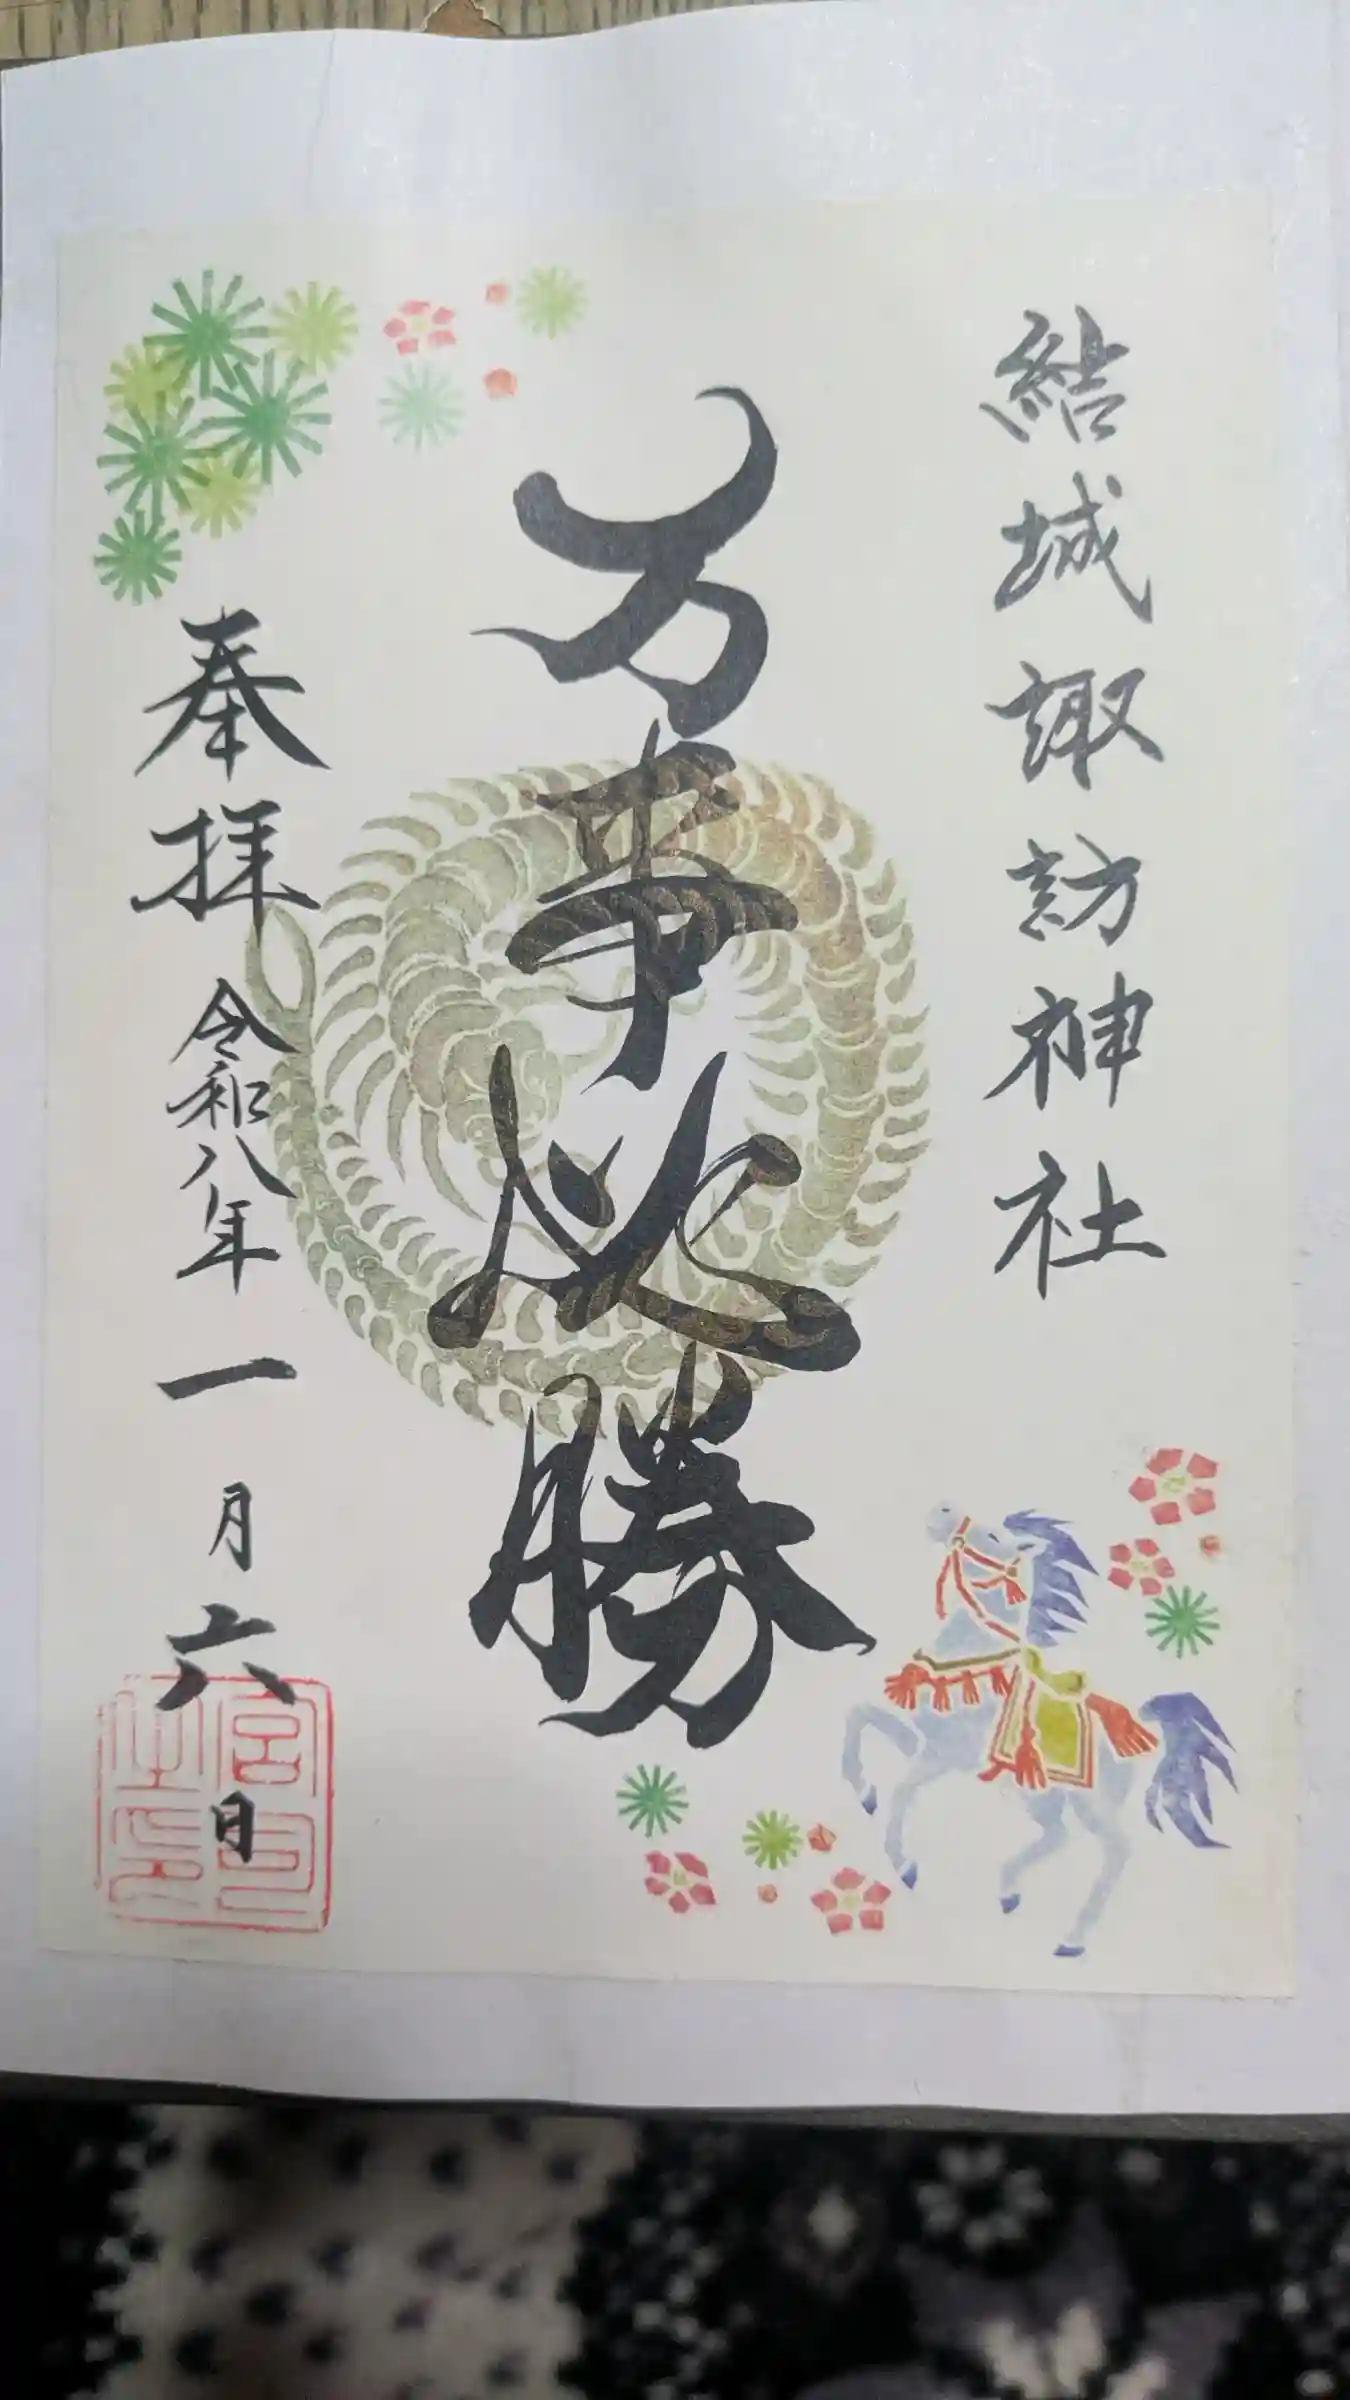 結城諏訪神社
万事必勝
奉拝
令和八年一月六日
宮司之印